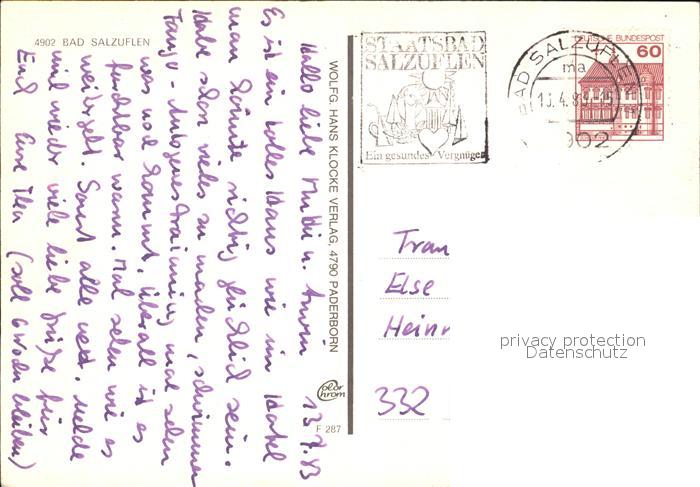 4902 BAD SALZUFLEN
Hallo liebe Mutti u. Armin 13.4.83
Es ist ein tolles Haus wie im Hotel
man könnte richtig glücklich sein.
Habe schon vieles zu machen, schwimmen
Tango - Autogenes Training mal sehen
was noch kommt, überall ist es
furchtbar warm. Mal sehen wie es
weitergeht. Sonst alle nett. Melde
mich wieder viele liebe Grüße für
Euch Eure Thea (soll 6 Wochen bleiben)
WOLFG. HANS KLOCKE VERLAG, 4790 PADERBORN
color chrom
F 287
STAATSBAD
SALZUFLEN
Ein gesundes Vergnügen
BAD SALZUFLEN
ma
13.4.83
4902
DEUTSCHE BUNDESPOST
60
Else
Heinr
332
privacy protection
Datenschutz